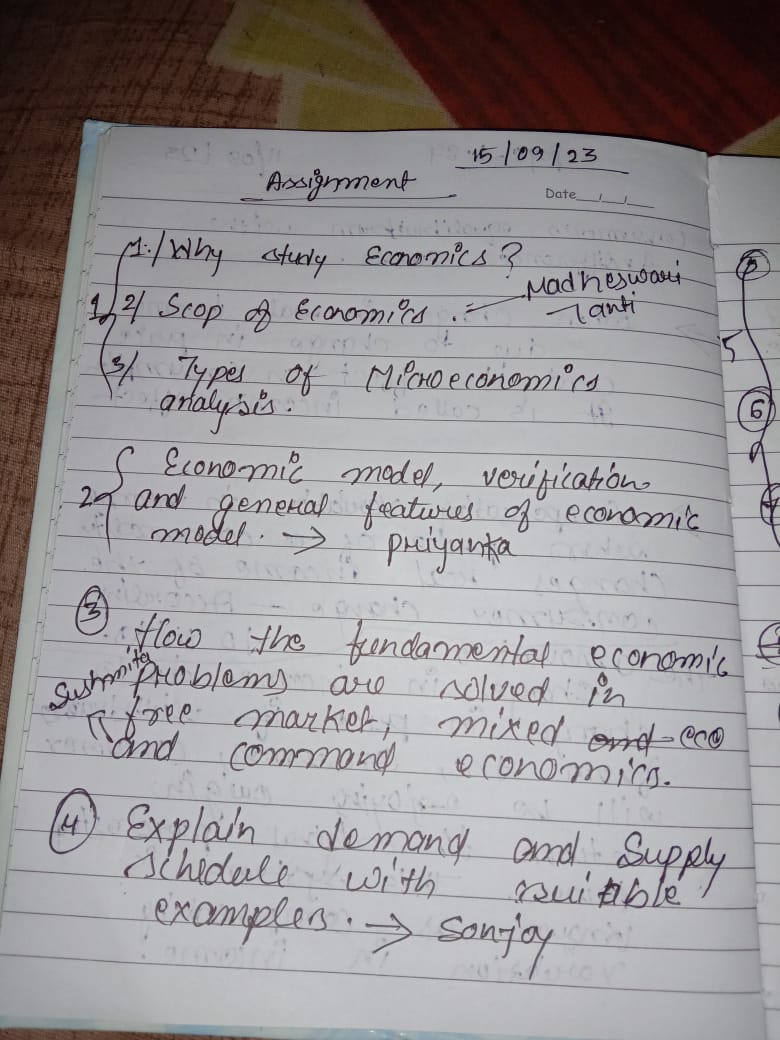 15/09/23
Assignment
Date
1./ Why study Economics?
1 2/ Scop of Economics. Madheswari
Tanti
3/ Types of Microeconomics
analysis.
Economic model, verification
2 and general features of economic
model. → Priyanka
3
How the fundamental economic
Sushmita problems are solved in
free market, mixed and eco
and command economics.
4 Explain demand and Supply
schedule with suitable
examples. → Sonjoy
5
5
6